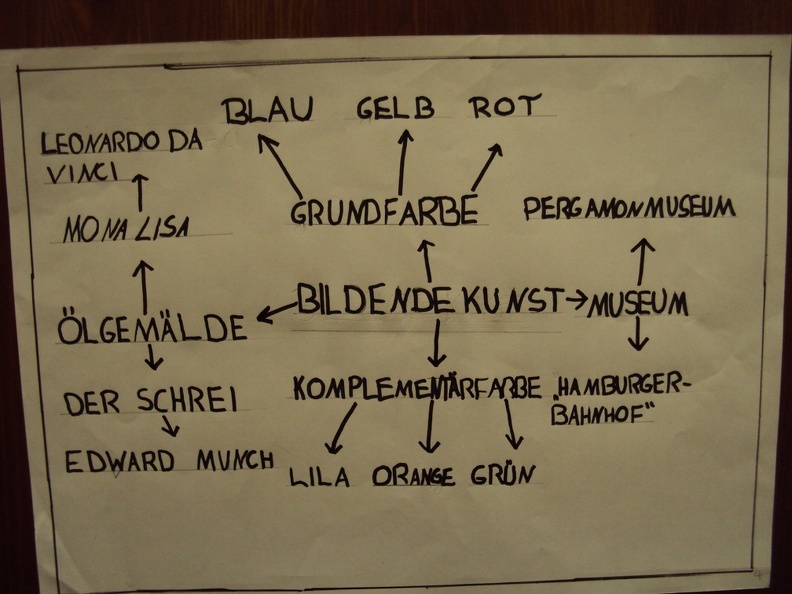 BLAU GELB ROT
LEONARDO DA
VINCI
MONA LISA
GRUNDFARBE
PERGAMONMUSEUM
BILDENDE KUNST
MUSEUM
ÖLGEMÄLDE
DER SCHREI
KOMPLEMENTÄRFARBE
„HAMBURGER-
BAHNHOF“
EDWARD MUNCH
LILA ORANGE GRÜN